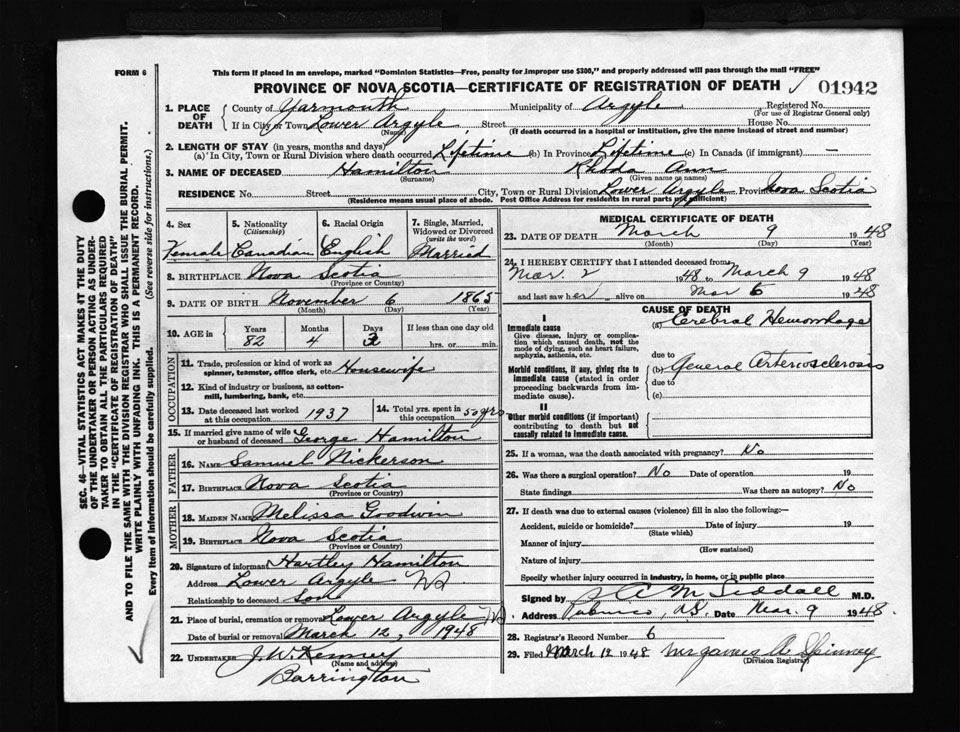 FORM 6
This form if placed in an envelope, marked "Dominion Statistics—Free, penalty for improper use $300," and properly addressed will pass through the mail "FREE"
PROVINCE OF NOVA SCOTIA—CERTIFICATE OF REGISTRATION OF DEATH 01942
1. PLACE OF DEATH County of Yarmouth Municipality of Argyle Registered No.
(For use of Registrar General only)
If in City or Town Lower Argyle, Street House No.
(Name) (If death occurred in a hospital or institution, give the name instead of street and number)
2. LENGTH OF STAY (in years, months and days)
(a) In City, Town or Rural Division where death occurred Lifetime (b) In Province Lifetime (c) In Canada (if immigrant) —
3. NAME OF DECEASED Hamilton Rhoda Ann
(Surname) (Given name or names)
RESIDENCE No. Street City, Town or Rural Division Lower Argyle Province Nova Scotia
(Residence means usual place of abode. Post Office Address for residents in rural parts not sufficient)
4. Sex 5. Nationality (Citizenship) 6. Racial Origin 7. Single, Married, Widowed or Divorced (write the word)
Female Canadian English Married
8. BIRTHPLACE Nova Scotia
(Province or Country)
9. DATE OF BIRTH November 6 1865
(Month) (Day) (Year)
10. AGE in Years Months Days If less than one day old
82 4 3 hrs. or min.
OCCUPATION
11. Trade, profession or kind of work as spinner, teamster, office clerk, etc. Housewife
12. Kind of industry or business, as cotton-mill, lumbering, bank, etc.
13. Date deceased last worked at this occupation 1937 14. Total yrs. spent in this occupation 50 yrs
15. If married give name of wife or husband of deceased George Hamilton
FATHER
16. NAME Samuel Nickerson
17. BIRTHPLACE Nova Scotia
(Province or Country)
MOTHER
18. MAIDEN NAME Melissa Goodwin
19. BIRTHPLACE Nova Scotia
(Province or Country)
20. Signature of informant Hartley Hamilton
Address Lower Argyle NS
Relationship to deceased Son
21. Place of burial, cremation or removal Lower Argyle NS
Date of burial or removal March 12, 1948
22. UNDERTAKER J. W. Kenney
(Name and address)
Barrington
MEDICAL CERTIFICATE OF DEATH
23. DATE OF DEATH March 9 1948
(Month) (Day) (Year)
24. I HEREBY CERTIFY that I attended deceased from
Mar. 2 1948 to March 9 1948
and last saw her alive on Mar 6 1948
CAUSE OF DEATH
I
Immediate cause (a) Cerebral Hemorrhage
Give disease, injury or complication which caused death, not the mode of dying, such as heart failure, asphyxia, asthenia, etc.
due to
Morbid conditions, if any, giving rise to immediate cause (stated in order proceeding backwards from immediate cause). (b) General Arterosclerosis
due to
(c)
II
Other morbid conditions (if important) contributing to death but not causally related to immediate cause.
25. If a woman, was the death associated with pregnancy? No
26. Was there a surgical operation? No Date of operation 19
State findings Was there an autopsy? No
27. If death was due to external causes (violence) fill in also the following:—
Accident, suicide or homicide? Date of injury 19
(State which)
Manner of injury
(How sustained)
Nature of injury
Specify whether injury occurred in industry, in home, or in public place
Signed by A M Siddall M.D.
Address Pubnico, NS. Date Mar. 9 1948.
28. Registrar's Record Number 6
29. Filed March 12 1948 Mrs James A Spinney
(Division Registrar)
SEC. 46—VITAL STATISTICS ACT MAKES IT THE DUTY
OF THE UNDERTAKER OR PERSON ACTING AS UNDER-
TAKER TO OBTAIN ALL THE PARTICULARS REQUIRED
IN THE "CERTIFICATE OF REGISTRATION OF DEATH"
AND TO FILE THE SAME WITH THE DIVISION REGISTRAR WHO SHALL ISSUE THE BURIAL PERMIT.
WRITE PLAINLY WITH UNFADING INK. THIS IS A PERMANENT RECORD.
Every item of information should be carefully supplied. (See reverse side for instructions.)